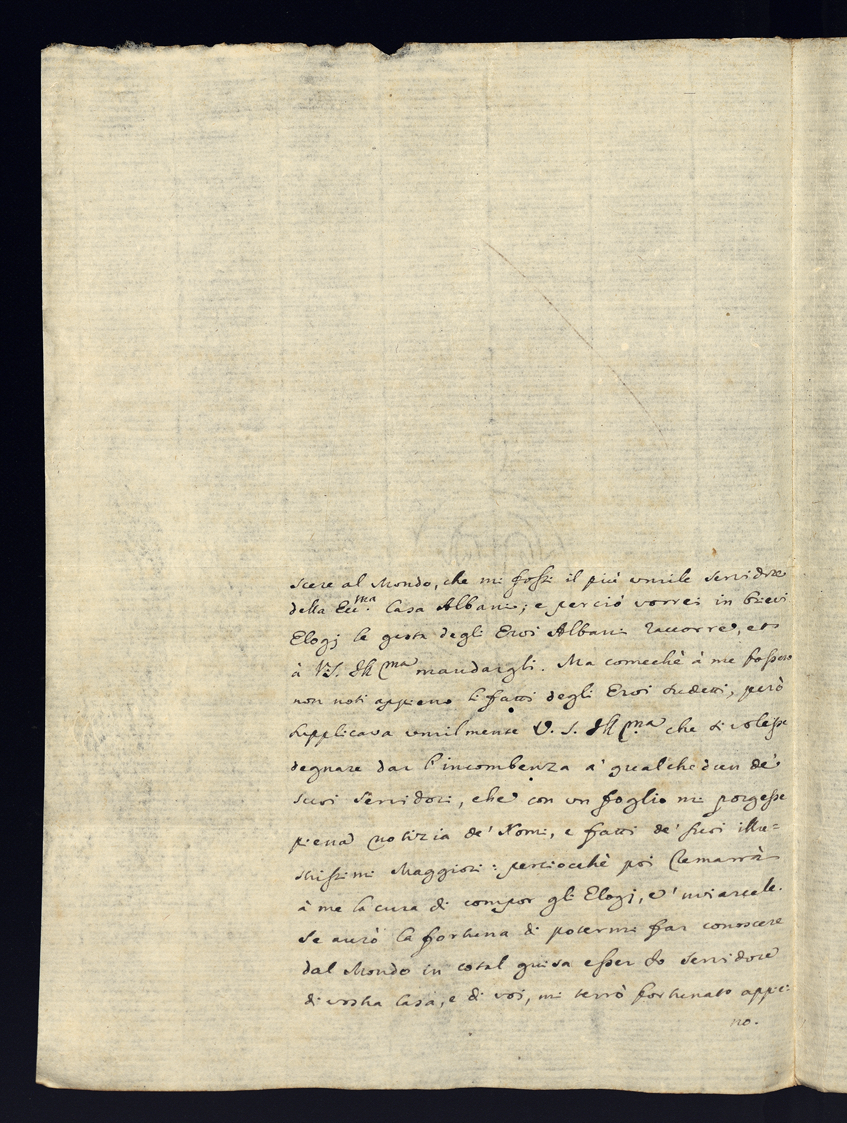 scere al Mondo, che mi fossi il più umile servidore
della Ecc.ma Casa Albani; e perciò vorrei in brievi
Elogj le gesta degli Eroi Albani raccorre, et
à V.S. Ill.ma mandargli. Ma comechè à me fossero
non noti appieno li fatti degli Eroi sudetti, però
supplicava umilmente V. S. Ill.ma che si volesse
degnare dar l'incombenza a' qualchedun de'
suoi servidori, che con un foglio mi porgesse
piena notizia de' Nomi, e fatti de' suoi illu=
strissimi Maggiori: perciocchè poi remarrà
à me la cura di compor gli Elogj, e' inviarcele.
Se aurò la fortuna di potermi far conoscere
dal Mondo in cotal guisa esser Io servidore
di vostra Casa, e di voi, mi terrò fortunato appie:
no.